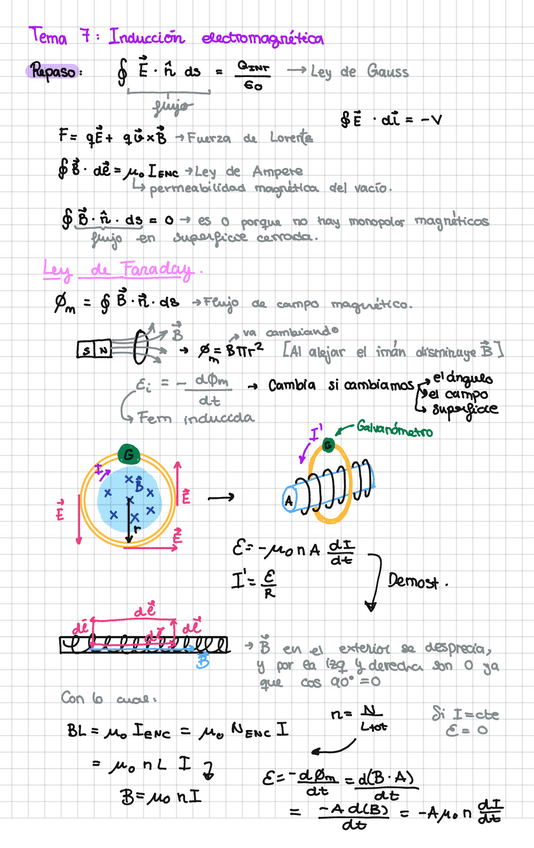 Tema 7: Inducción electromagnética
Repaso: ∮ E⃗ · n̂ ds = Q_INT / ε₀ → Ley de Gauss
flujo
∮ E⃗ · dl⃗ = -V
F = qE⃗ + qv⃗ x B⃗ → Fuerza de Lorentz
∮ B⃗ · dℓ⃗ = μ₀ I_ENC → Ley de Ampere
↳ permeabilidad magnética del vacío.
∮ B⃗ · n̂ · ds = 0 → es 0 porque no hay monopolos magnéticos
flujo en superficie cerrada.
Ley de Faraday.
Ø_m = ∮ B⃗ · n⃗ · ds → Flujo de campo magnético.
va cambiando
S N B⃗ → Ø_m = Bπr² [Al alejar el imán disminuye B⃗]
ε_i = - dØ_m / dt → Cambia si cambiamos → el ángulo
→ el campo
↳ superficie
Fem inducida
G I B⃗ r E⃗ E⃗ E⃗
I' Galvanómetro
G A
ε = -μ₀ n A dI / dt
I' = ε / R
Demost.
dℓ⃗
dℓ⃗ dℓ⃗ dℓ⃗
B⃗
→ B⃗ en el exterior se desprecia,
y por la izq y derecha son 0 ya
que cos 90° = 0
Con lo cual:
BL = μ₀ I_ENC = μ₀ N_ENC I
n = N / L_tot
Si I = cte
ε = 0
= μ₀ n L I
B = μ₀ n I
ε = -dØ_m / dt = d(B · A) / dt
= -A d(B) / dt = -A μ₀ n dI / dt